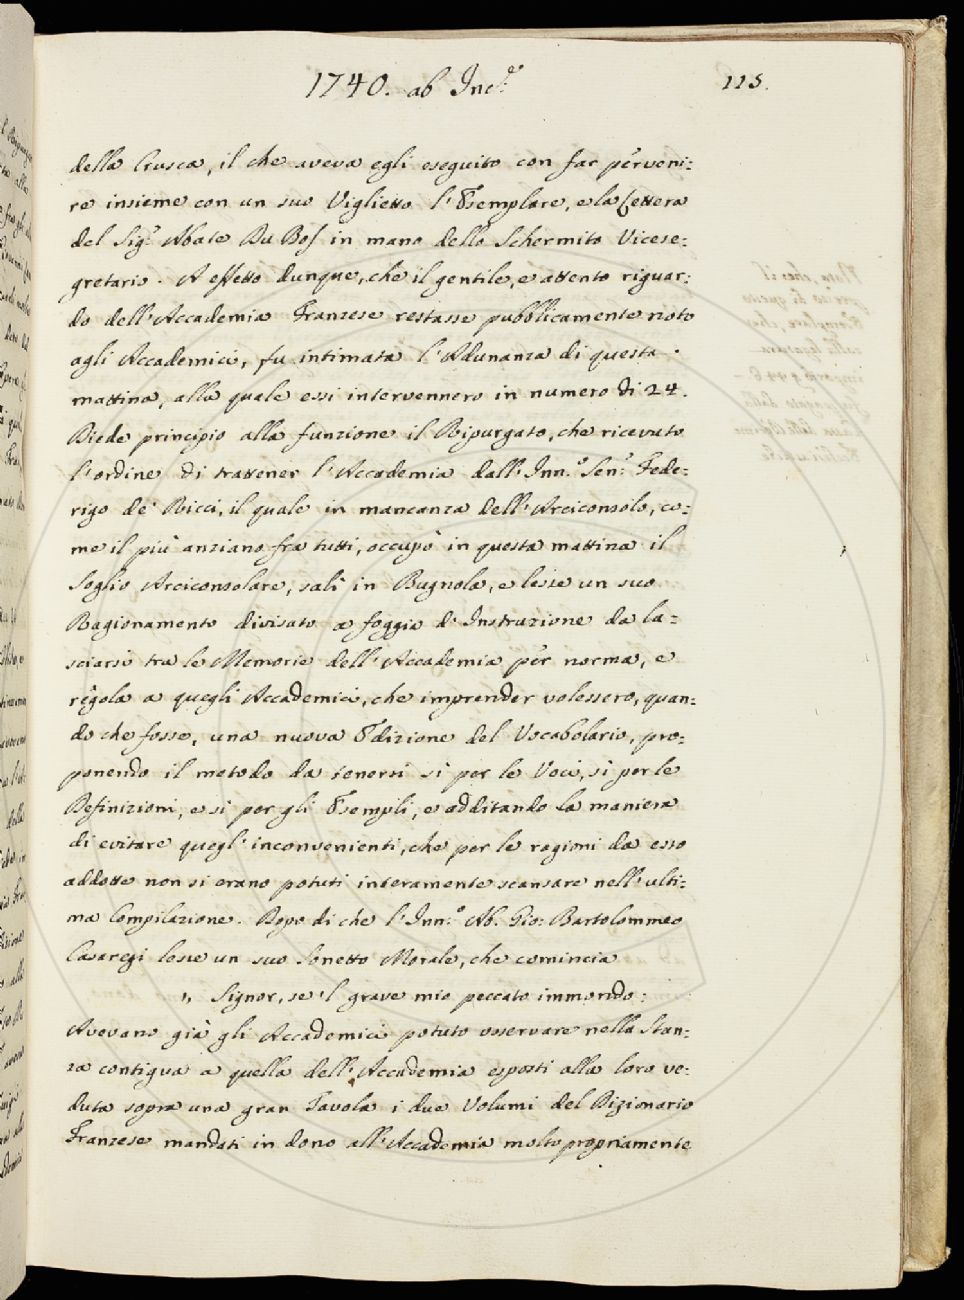 1740. ab Inc.e
115.
della Crusca, il che aveva egli eseguito con far perveni:
re insieme con un suo Viglietto l'Esemplare, e la Lettera
del Sig.r Abate Du Bos in mano dello Schermito Vicese:
gretario. A effetto dunque, che il gentile, e attento riguar:
do dell'Accademia Franzese restasse pubblicamente noto
agli Accademici, fu intimata l'Adunanza di questa
mattina, alla quale essi intervennero in numero di 24.
Diede principio alla funzione il Ripurgato, che ricevuto
l'ordine di trattener l'Accademia dall'Inn.o Sen.r Fede:
rigo de' Ricci, il quale in mancanza dell'Arciconsolo, co:
me il più anziano fra tutti, occupò in questa mattina il
Soglio Arciconsolare, salì in Bugnola, e lesse un suo
Ragionamento divisato a foggia d'Instruzione da la:
sciarsi tra le Memorie dell'Accademia per norma, e
regola a quegli Accademici, che imprender volessero, quan:
do che fosse, una nuova Edizione del Vocabolario, pro:
ponendo il metodo da tenersi sì per le Voci, sì per le
Definizioni, e sì per gli Esempli, e additando la maniera
di evitare quegl'inconvenienti, che per le ragioni da esso
addotte non si erano potuti interamente scansare nell'ulti:
ma Compilazione. Dopo di che l'Inn.o Ab. Gio: Bartolommeo
Casaregi lesse un suo Sonetto Morale, che comincia
" Signor, se 'l grave mio peccato immondo:
Avevano già gli Accademici potuto osservare nella Stan:
za contigua a quella dell'Accademia esposti alla loro ve:
duta sopra una gran Tavola i due Volumi del Dizionario
Franzese mandati in dono all'Accademia molto propriamente